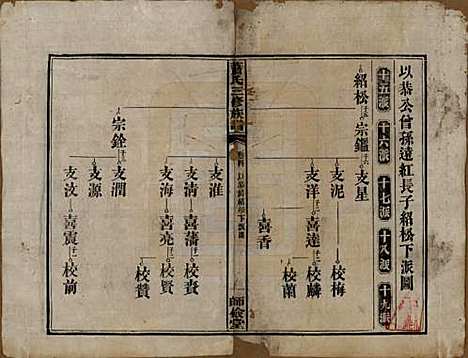 以恭公曾孫遠紅長子紹松下派圖
十五派 十六派 十七派 十八派 十九派
紹松 宗鑑 支星
支泥 校梅
支洋 喜達 校麟
校蘭
喜香
氏三修族譜
師儉堂
支淮
支清 喜藩 校貴
支海 喜亮 校賢
校贊
宗銓 支潤
支源
支汶 喜震 校前